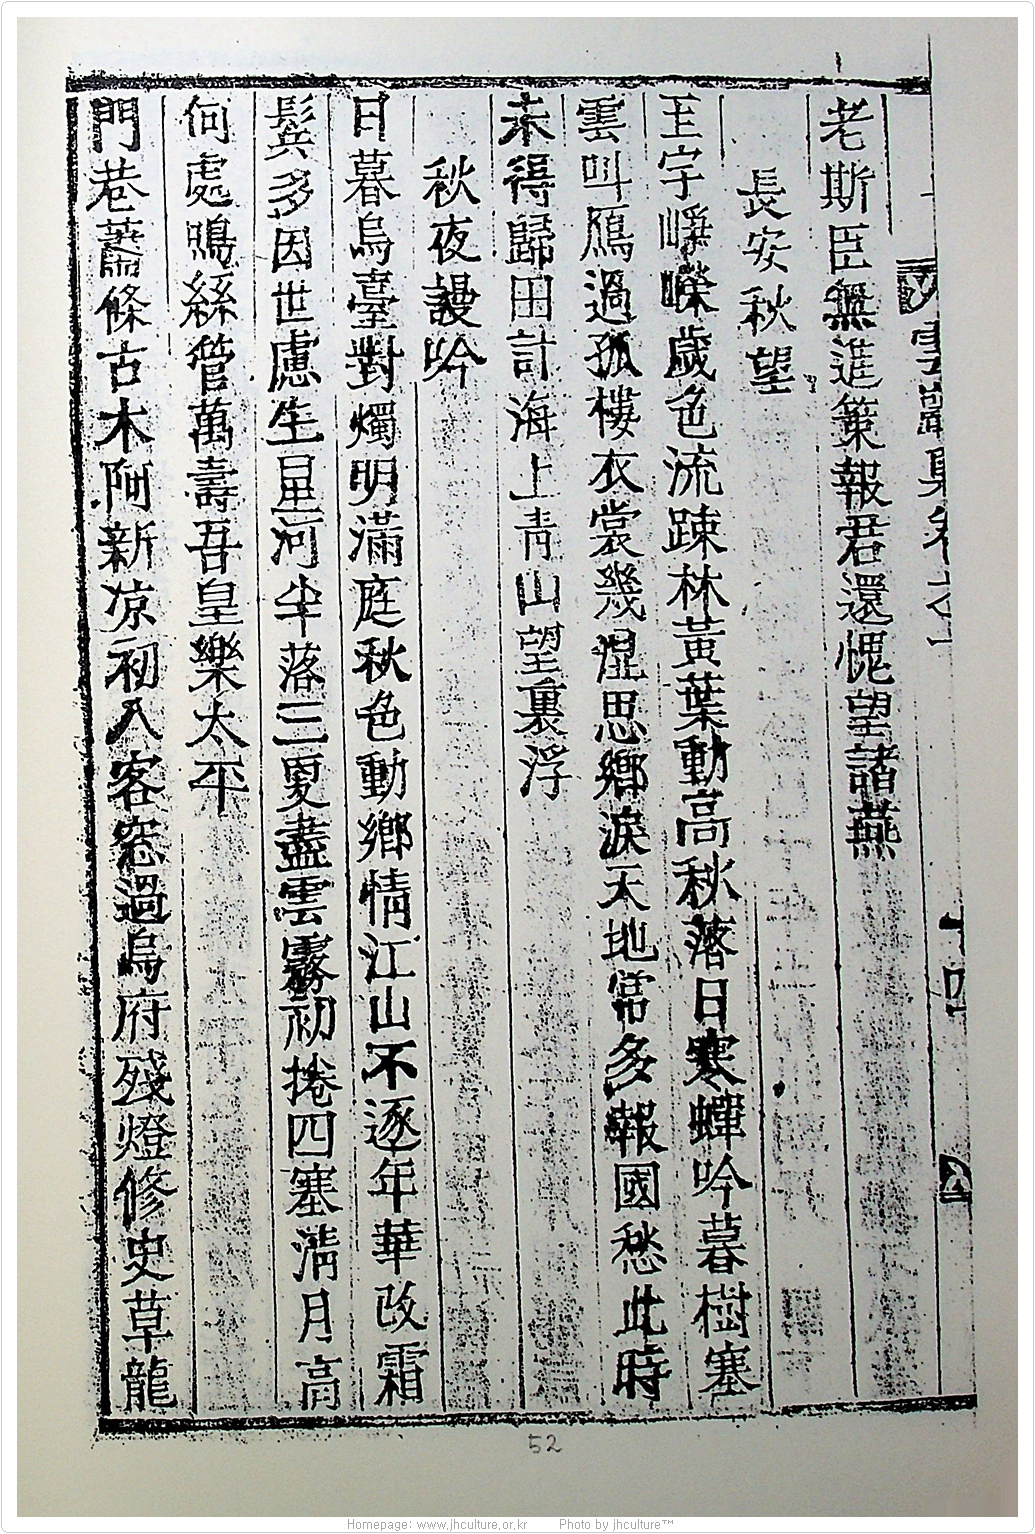 雲巖集卷之一 十四
老斯臣無進策報君還愧望諸燕
長安秋望
玉宇崢嶸歲色流疎林黃葉動高秋落日寒蟬吟暮樹塞
雲叫鴈過孤樓衣裳幾湿思鄉淚天地常多報國愁此時
未得歸田計海上靑山望裏浮
秋夜謾吟
日暮烏臺對燭明滿庭秋色動鄉情江山不逐年華改霜
鬂多因世慮生星河半落三更盡雲霧初捲四塞淸月高
何處鳴絲管萬壽吾皇樂太平
門巷蕭條古木阿新凉初入客窓過烏府殘燈修史草龍
52
Homepage: www.jhculture.or.kr Photo by jhculture™